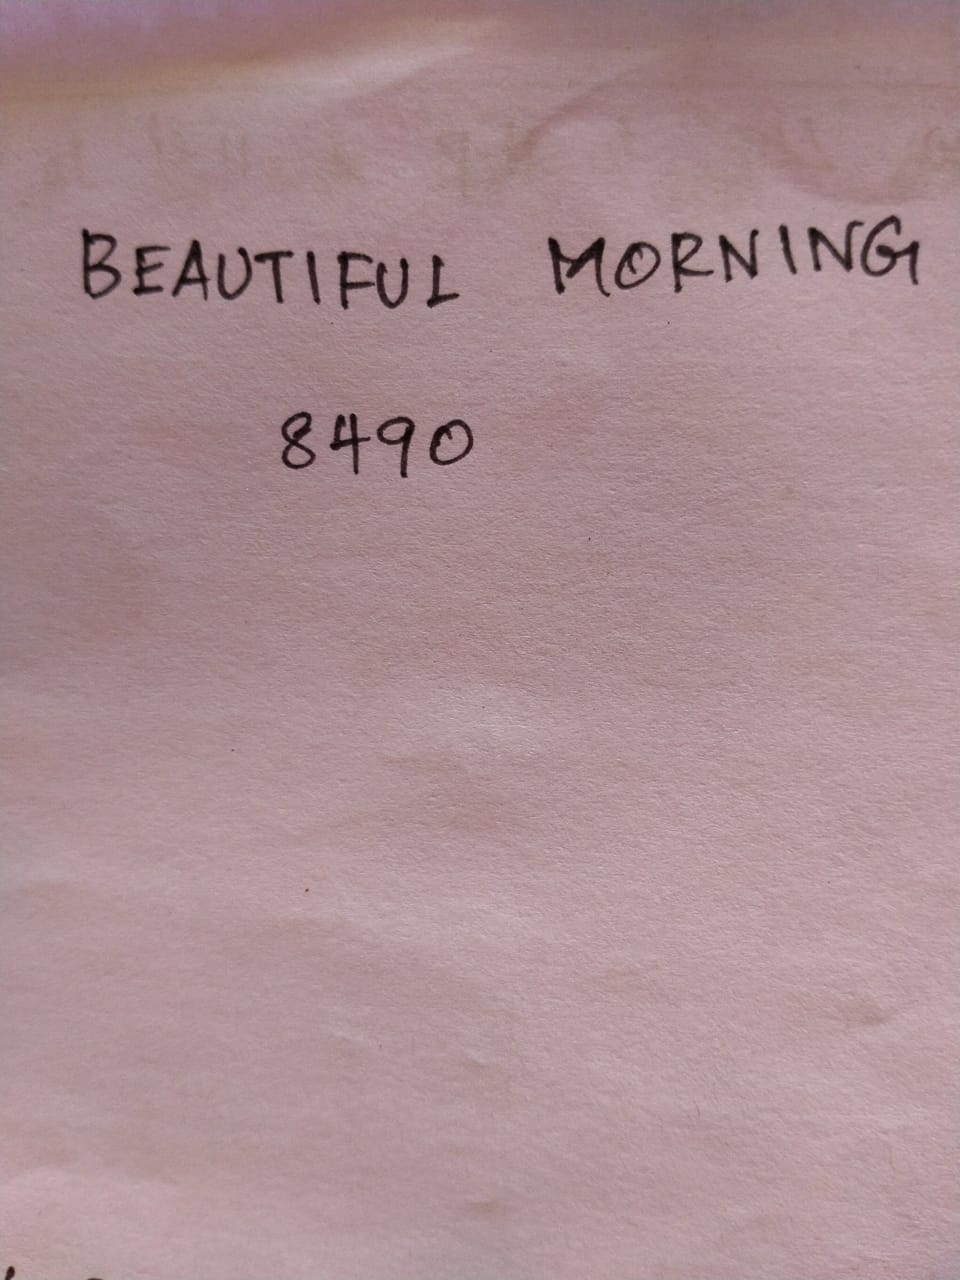 BEAUTIFUL MORNING
8490